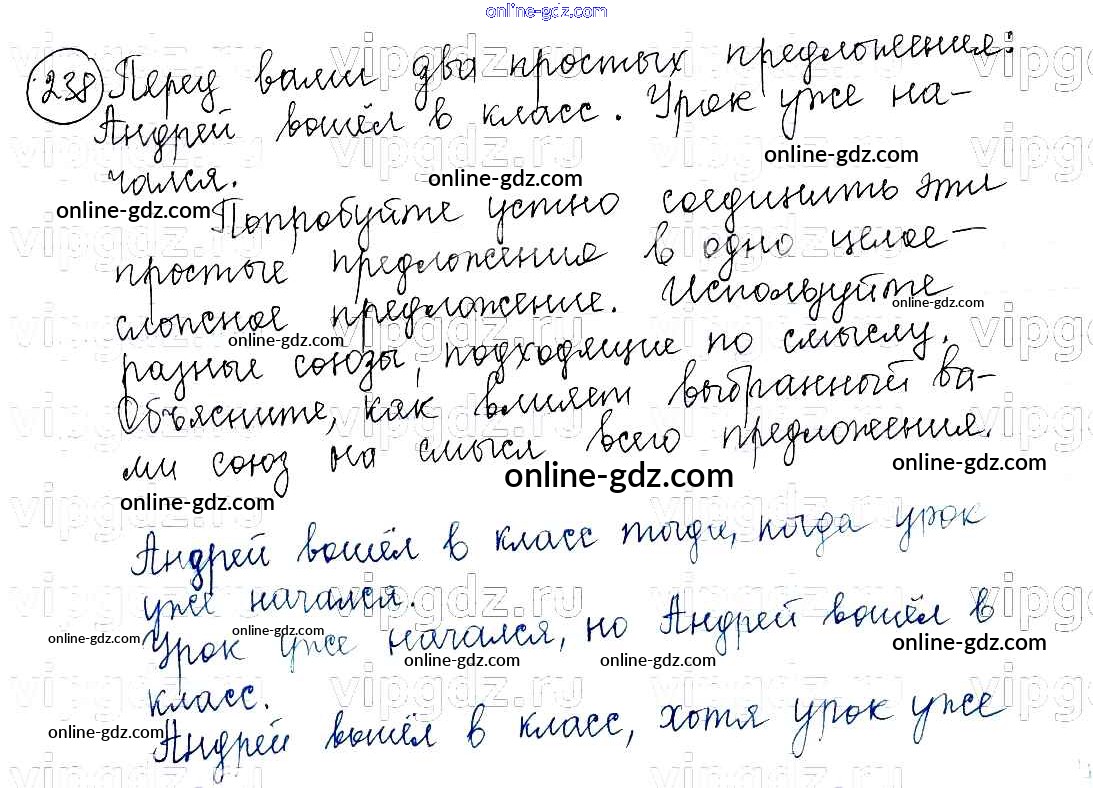 online-gdz.com
238 Перед вами два простых предложения:
Андрей вошёл в класс. Урок уже на-
online-gdz.com
чался.
online-gdz.com
online-gdz.com
Попробуйте устно соединить эти
простые предложения в одно целое –
сложное предложение. Используйте
online-gdz.com
online-gdz.com
разные союзы, подходящие по смыслу.
Объясните, как влияет выбранный ва-
ми союз на смысл всего предложения.
online-gdz.com
online-gdz.com
online-gdz.com
Андрей вошёл в класс тогда, когда урок
уже начался.
Урок уже начался, но Андрей вошёл в
online-gdz.com
online-gdz.com
online-gdz.com
online-gdz.com
online-gdz.com
класс.
Андрей вошёл в класс, хотя урок уже
online-gdz.com